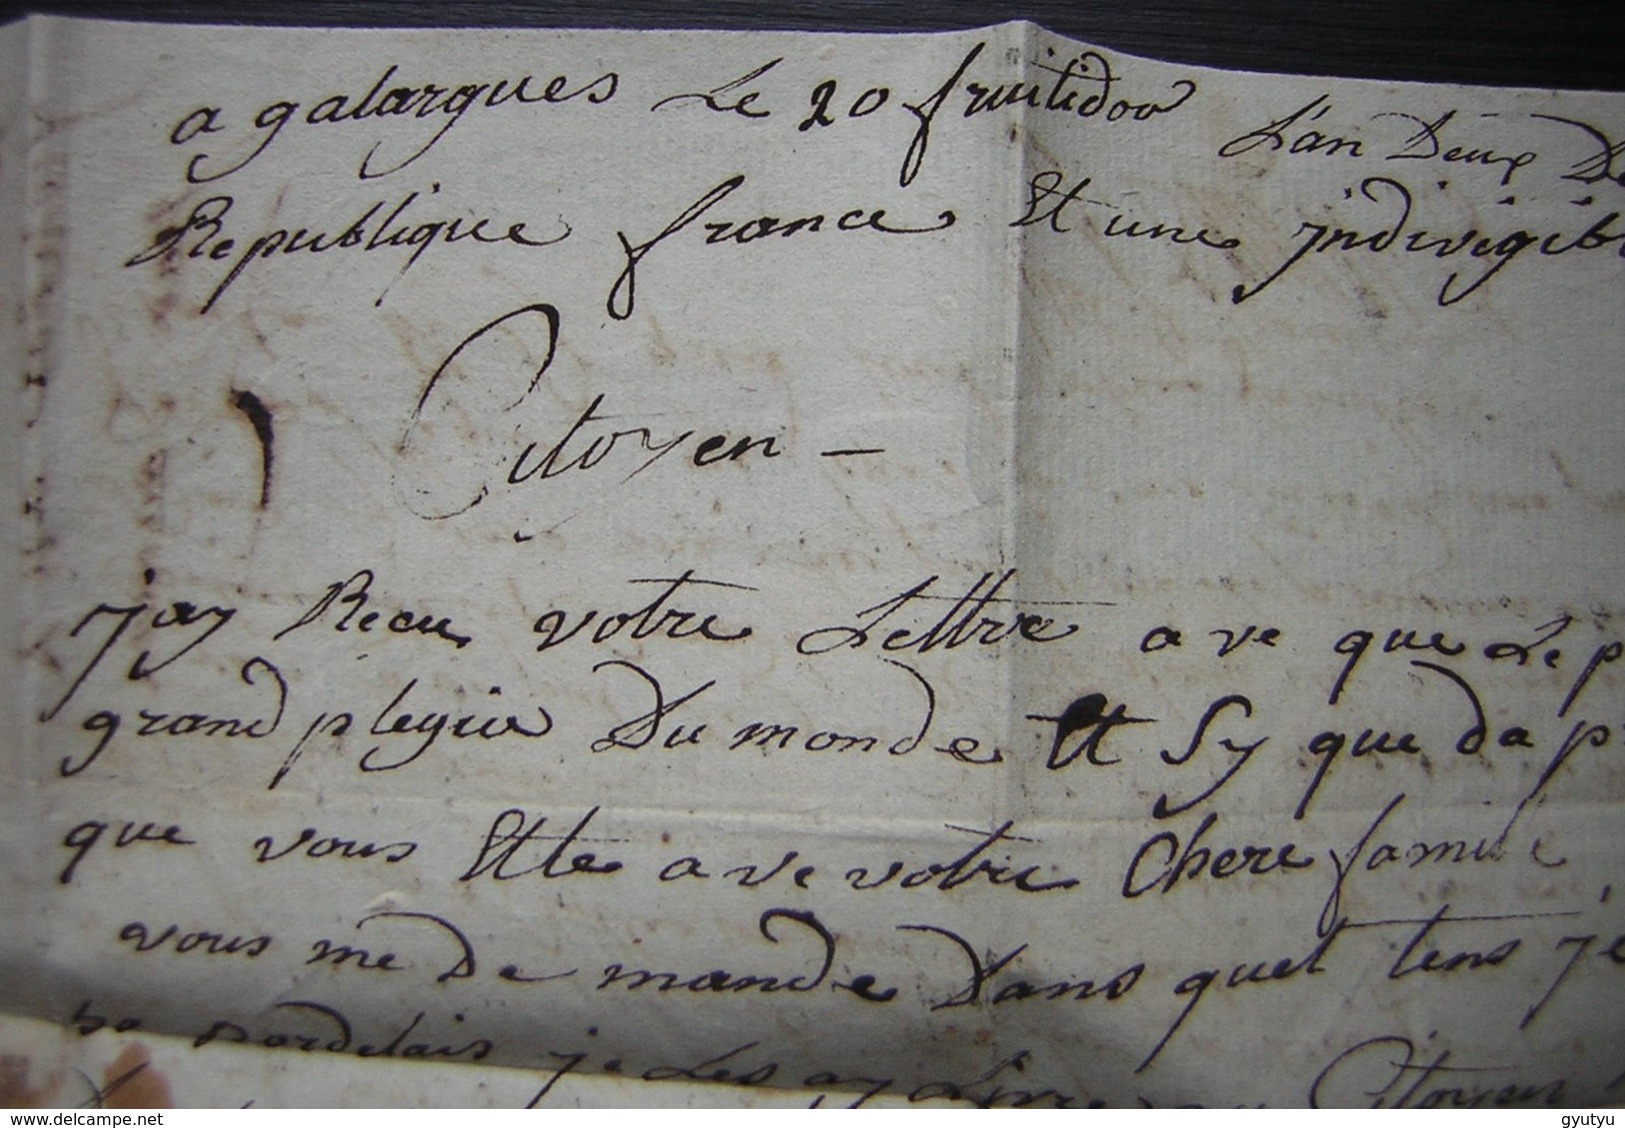 a galargues Le 20 fruitidoo L'an Deux De
Republique france Et une jndivigib
Citoyen –
j'ay Recu votre Lettre ave que Le p
grand plegir Du monde Et Sy que da p
que vous Ette ave votre Chere famile,
vous me De mande Dans quel tens je
je Les ay Livre Citoyen
delcampe.net
gyutyu